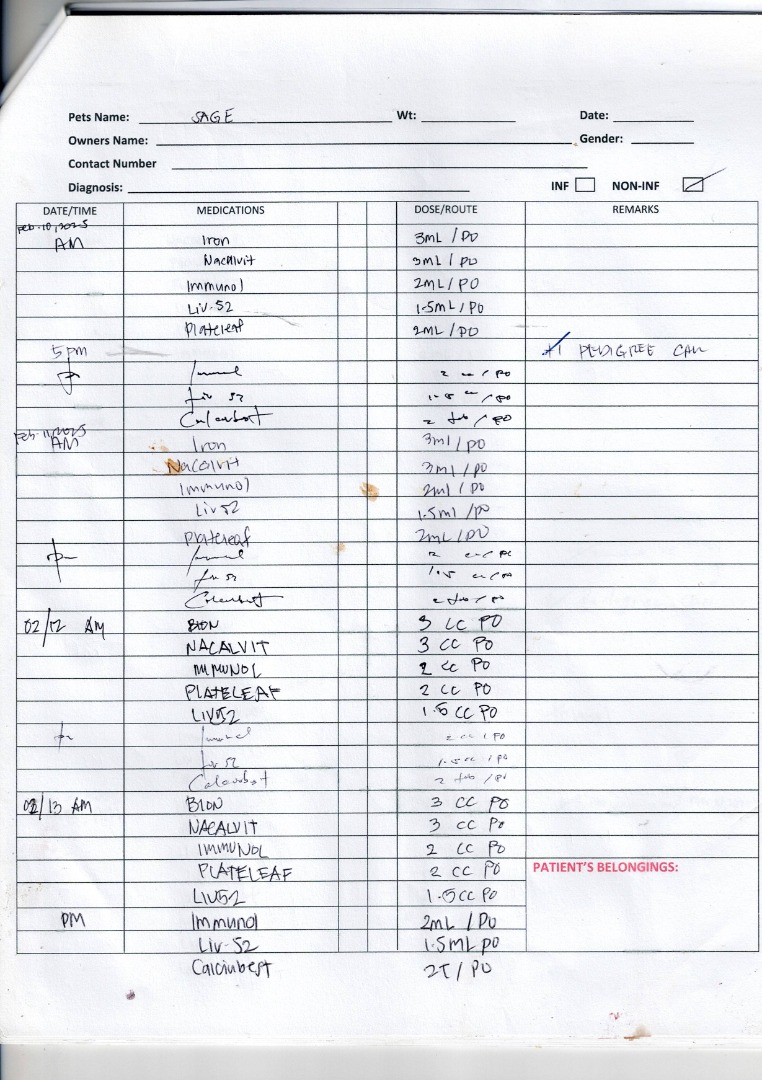 Pets Name: SAGE Wt: Date:
Owners Name: Gender:
Contact Number
Diagnosis: INF NON-INF
DATE/TIME MEDICATIONS DOSE/ROUTE REMARKS
Feb. 10, 2025
AM Iron 3mL / PO
Nacalvit 3mL / PO
Immunol 2mL / PO
Liv-52 1.5mL / PO
Plateleaf 2mL / PO
5pm +1 PEDIGREE CAN
2 cc / PO
Liv 52 1.5 cc / PO
2 tab / PO
Feb. 11, 2025
AM Iron 3ml / PO
Nacalvit 3ml / PO
Immunol 2ml / PO
Liv 52 1.5ml / PO
Plateleaf 2mL / PO
2 cc / PO
Liv 52 1.5 cc / PO
2 tab / PO
02/12 AM BION 3 CC PO
NACALVIT 3 CC PO
IMMUNOL 2 CC PO
PLATELEAF 2 CC PO
LIV52 1.5 CC PO
2 cc / PO
Liv 52 1.5 cc / PO
2 tab / PO
02/13 AM BION 3 CC PO
NACALVIT 3 CC PO
IMMUNOL 2 CC PO
PLATELEAF 2 CC PO
PATIENT'S BELONGINGS:
LIV52 1.5 CC PO
PM Immunol 2mL / PO
Liv-52 1.5mL PO
Calciubest 2T / PO